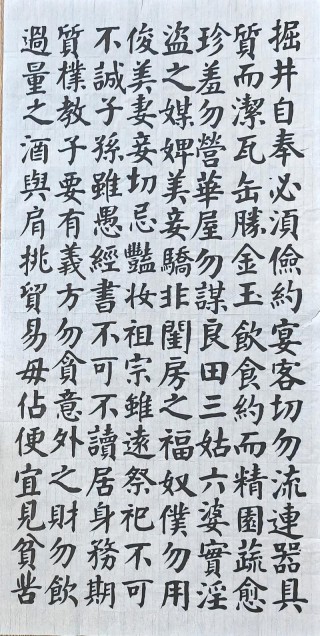 掘井自奉必須儉約宴客切勿流連器具
質而潔瓦缶勝金玉飲食約而精園蔬愈
珍羞勿營華屋勿謀良田三姑六婆實淫
盜之媒婢美妾驕非閨房之福奴僕勿用
俊美妻妾切忌豔妆祖宗雖遠祭祀不可
不誠子孫雖愚經書不可不讀居身務期
質樸教子要有義方勿貪意外之財勿飲
過量之酒與肩挑貿易毋佔便宜見貧苦